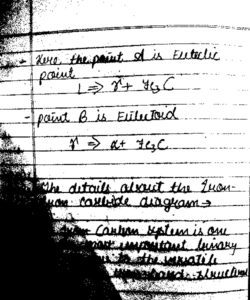 - Here, the point A is Eutetic
point
L ⇒ γ + Fe3C
- point B is Eutectoid
γ ⇒ α + Fe3C
The details about the Iron-
carbide diagram →
Carbon System is one
most important binary
to the versatile